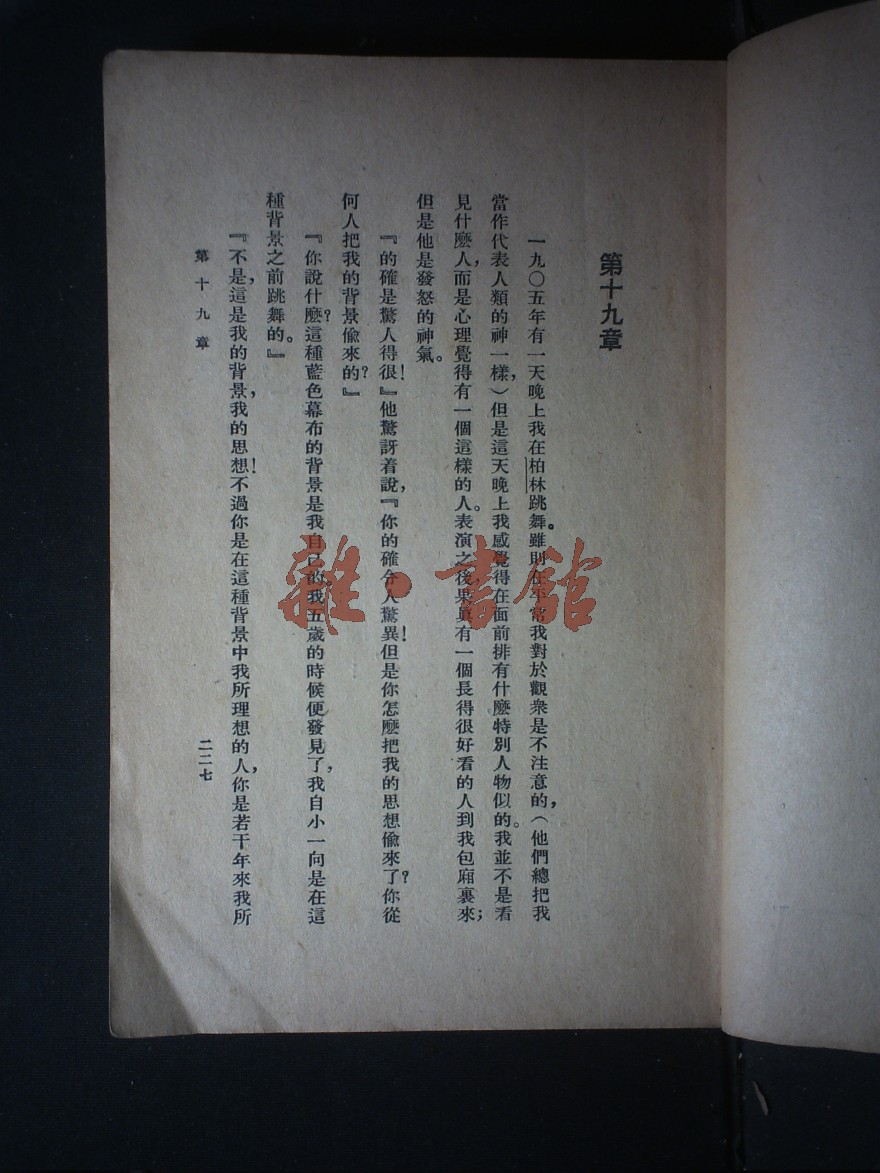 第十九章
一九〇五年有一天晚上我在柏林跳舞。雖則在平常我對於觀衆是不注意的，（他們總把我
當作代表人類的神一樣，）但是這天晚上我感覺得在面前排有什麽特別人物似的。我並不是看
見什麽人，而是心理覺得有一個這樣的人。表演之後，果眞有一個長得很好看的人到我包廂裏來；
但是他是發怒的神氣。
『的確是驚人得很！』他驚訝着說，『你的確令人驚異！但是你怎麽把我的思想偷來了？你從
何人把我的背景偷來的？』
『你說什麽？這種藍色幕布的背景是我自己的。我五歲的時候便發見了，我自小一向是在這
種背景之前跳舞的。』
『不是，這是我的背景，我的思想！不過你是在這種背景中我所理想的人，你是若干年來我所
第十九章
二二七
雜·書館